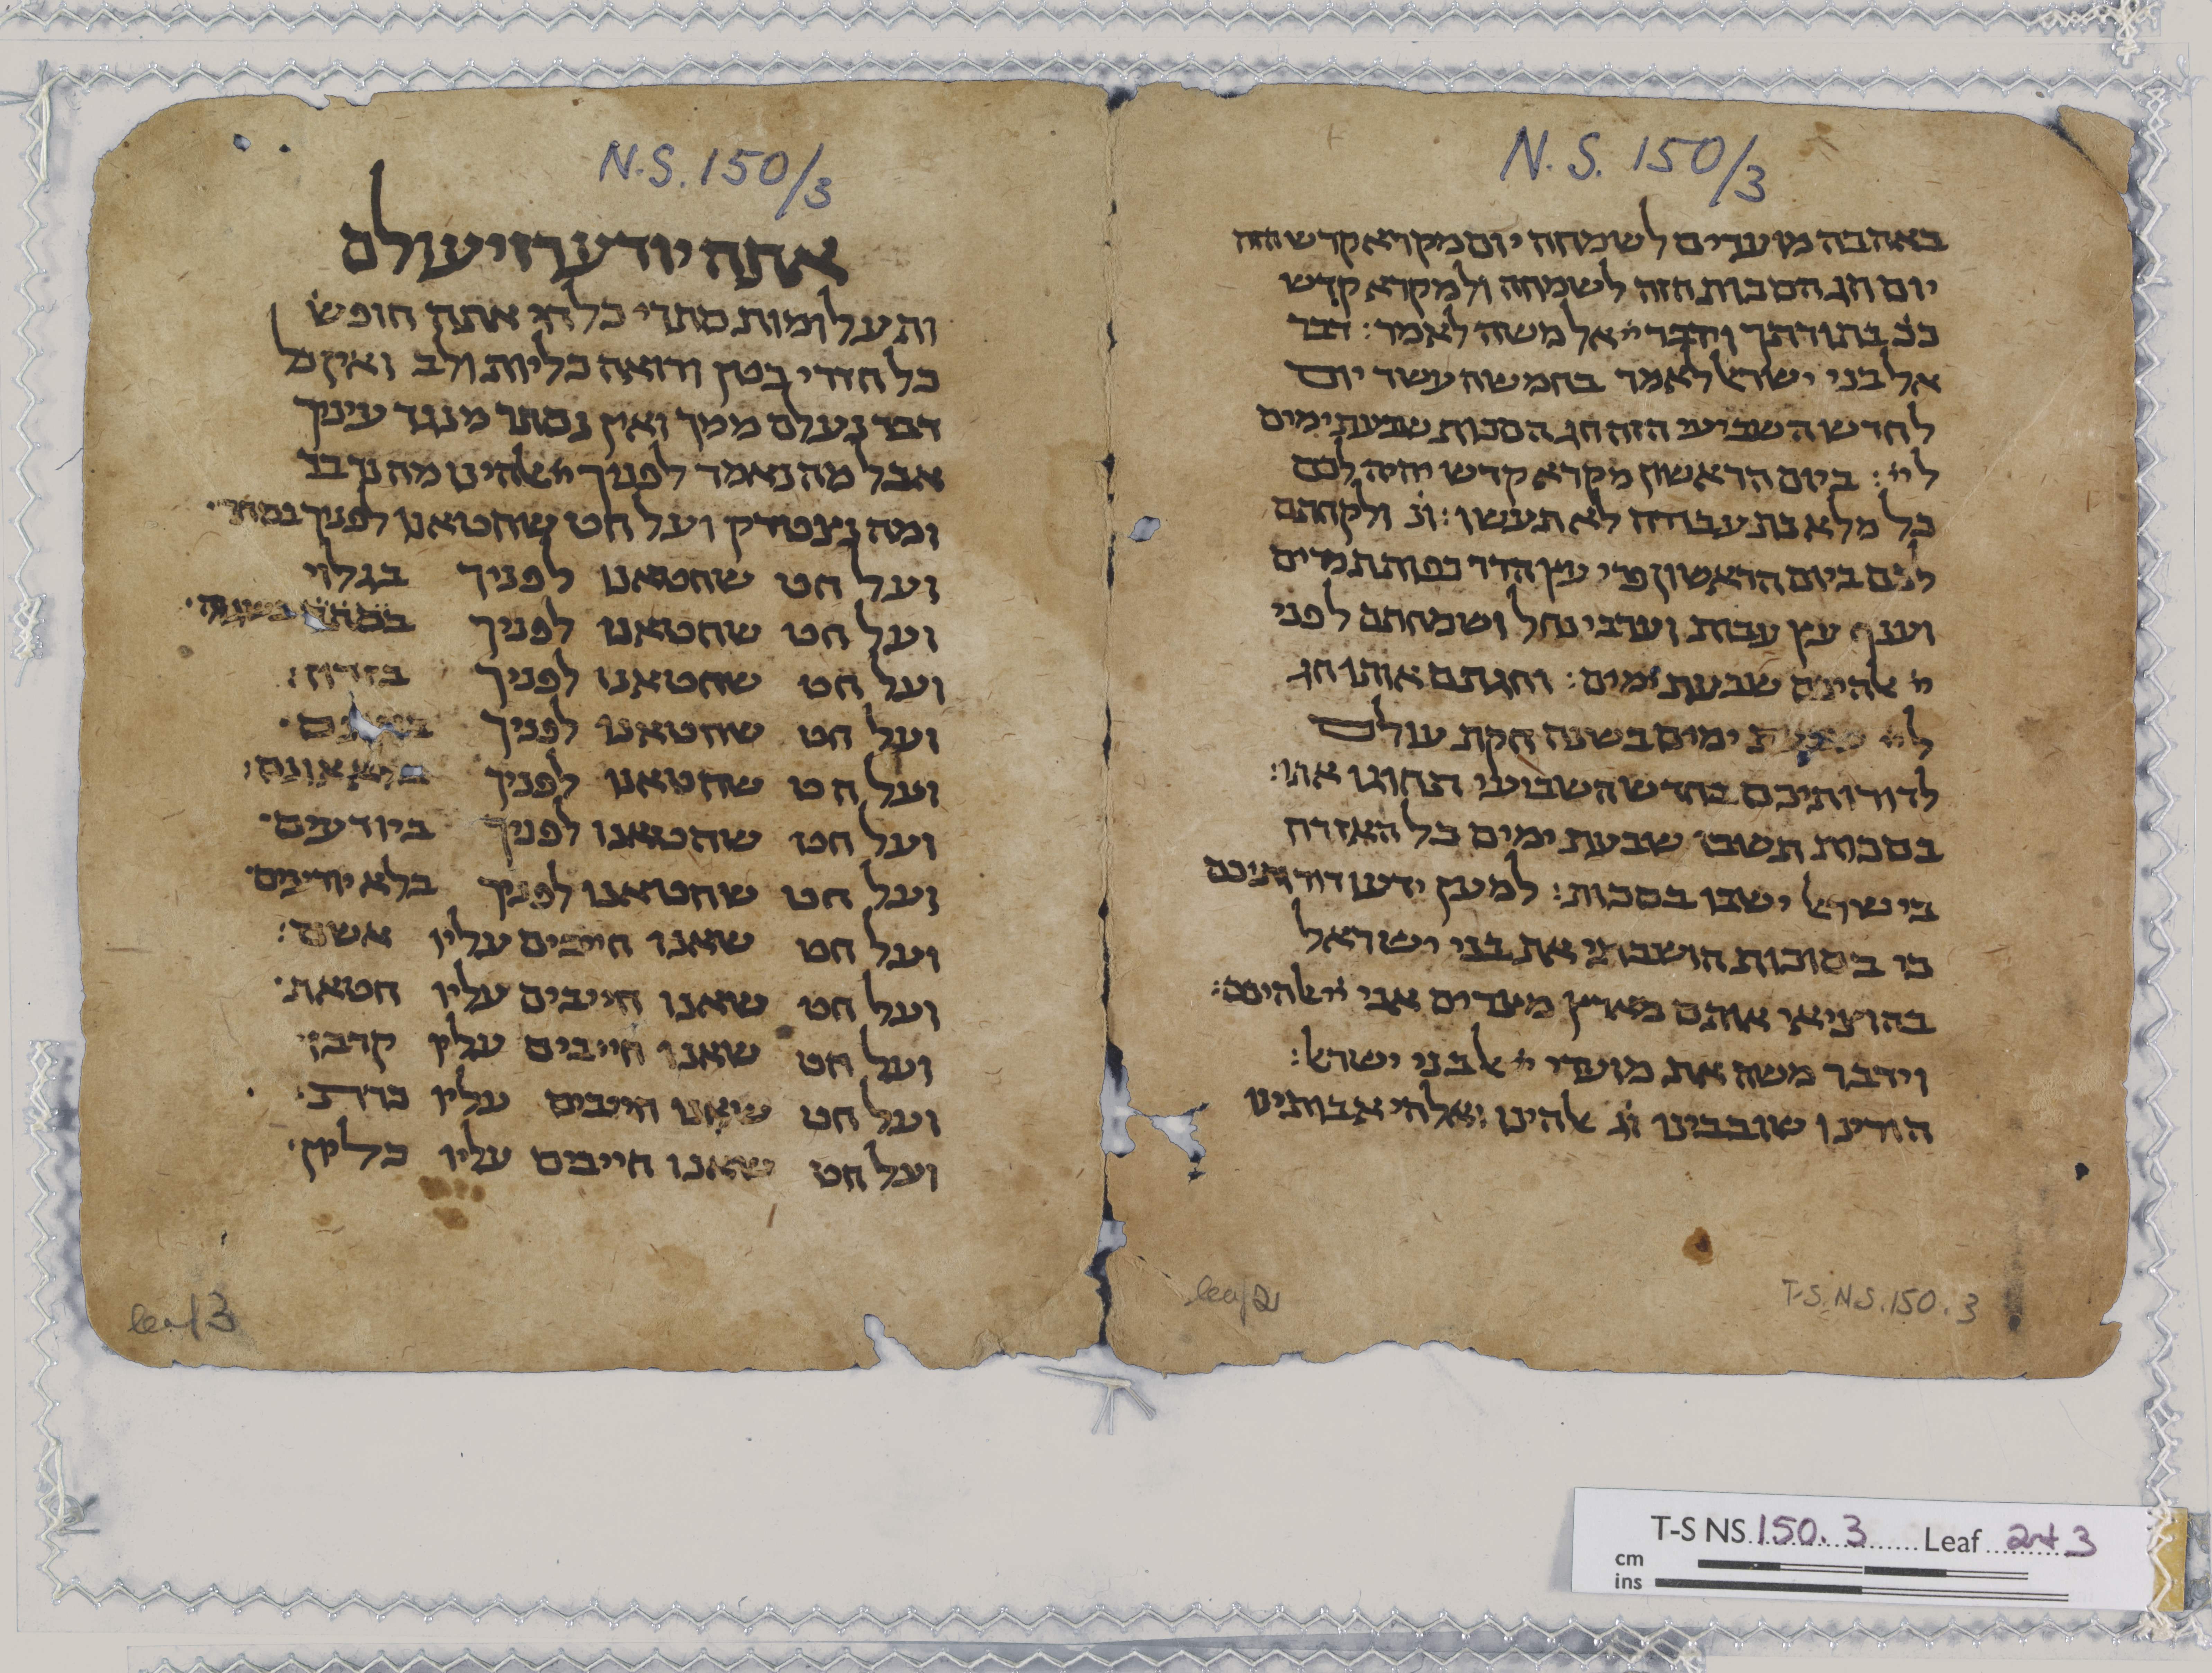 N.S. 150/3
באהבה מועדים לשמחה יום מקרא קדש הזה
יום חג הסכות הזה לשמחה ולמקרא קדש
ככ בתורתך וידבר יי אל משה לאמר : דבר
אל בני ישראל לאמר בחמשה עשר יום
לחדש השביעי הזה חג הסכות שבעת ימים
ליי : ביום הראשון מקרא קדש יהיה לכם
כל מלאכת עבודה לא תעשו : ונ ולקחתם
לכם ביום הראשון פרי עץ הדר כפות תמרים
וענף עץ עבות וערבי נחל ושמחתם לפני
יי אלהיכם שבעת ימים : וחגתם אותו חג
ליי שבעת ימים בשנה חקת עולם
לדורותיכם בחדש השביעי תחוגו אתו :
בסכות תשבו שבעת ימים כל האזרח
בישראל ישבו בסכות : למען ידעו דורותיכם
כי בסוכות הושבתי את בני ישראל
בהוציאי אותם מארץ מצרים אני יי אלהיכם :
וידבר משה את מועדי יי אל בני ישראל :
הודינו שובבינו וג אלהינו ואלהי אבותינו
leaf 2
T-S. N.S. 150. 3
N.S. 150/3
אתה יודע רזי עולם
ותעלומות סתרי כל חי אתה חופש
כל חדרי בטן ורואה כליות ולב ואין כל
דבר נעלם ממך ואין נסתר מנגד עיניך
אבל מה נאמר לפניך יי אלהינו מה נדבר
ומה נצטדק ועל חט שחטאנו לפניך
ועל חט שחטאנו לפניך בגלוי
ועל חט שחטאנו לפניך
ועל חט שחטאנו לפניך בזדון :
ועל חט שחטאנו לפניך
ועל חט שחטאנו לפניך
ועל חט שחטאנו לפניך ביודעים
ועל חט שחטאנו לפניך בלא יודעים
ועל חט שאנו חייבים עליו אשם :
ועל חט שאנו חייבים עליו חטאת
ועל חט שאנו חייבים עליו קרבן
ועל חט שאנו חייבים עליו כרת
ועל חט שאנו חייבים עליו
leaf 3
T-S NS 150. 3 Leaf 2+3
cm
ins